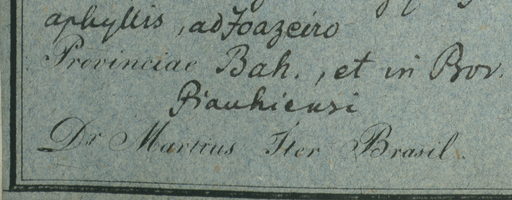 aphyllis, ad Joazeiro
Provinciae Bah., et in Prov.
Piauhiensi
Dr Martius Iter Brasil.